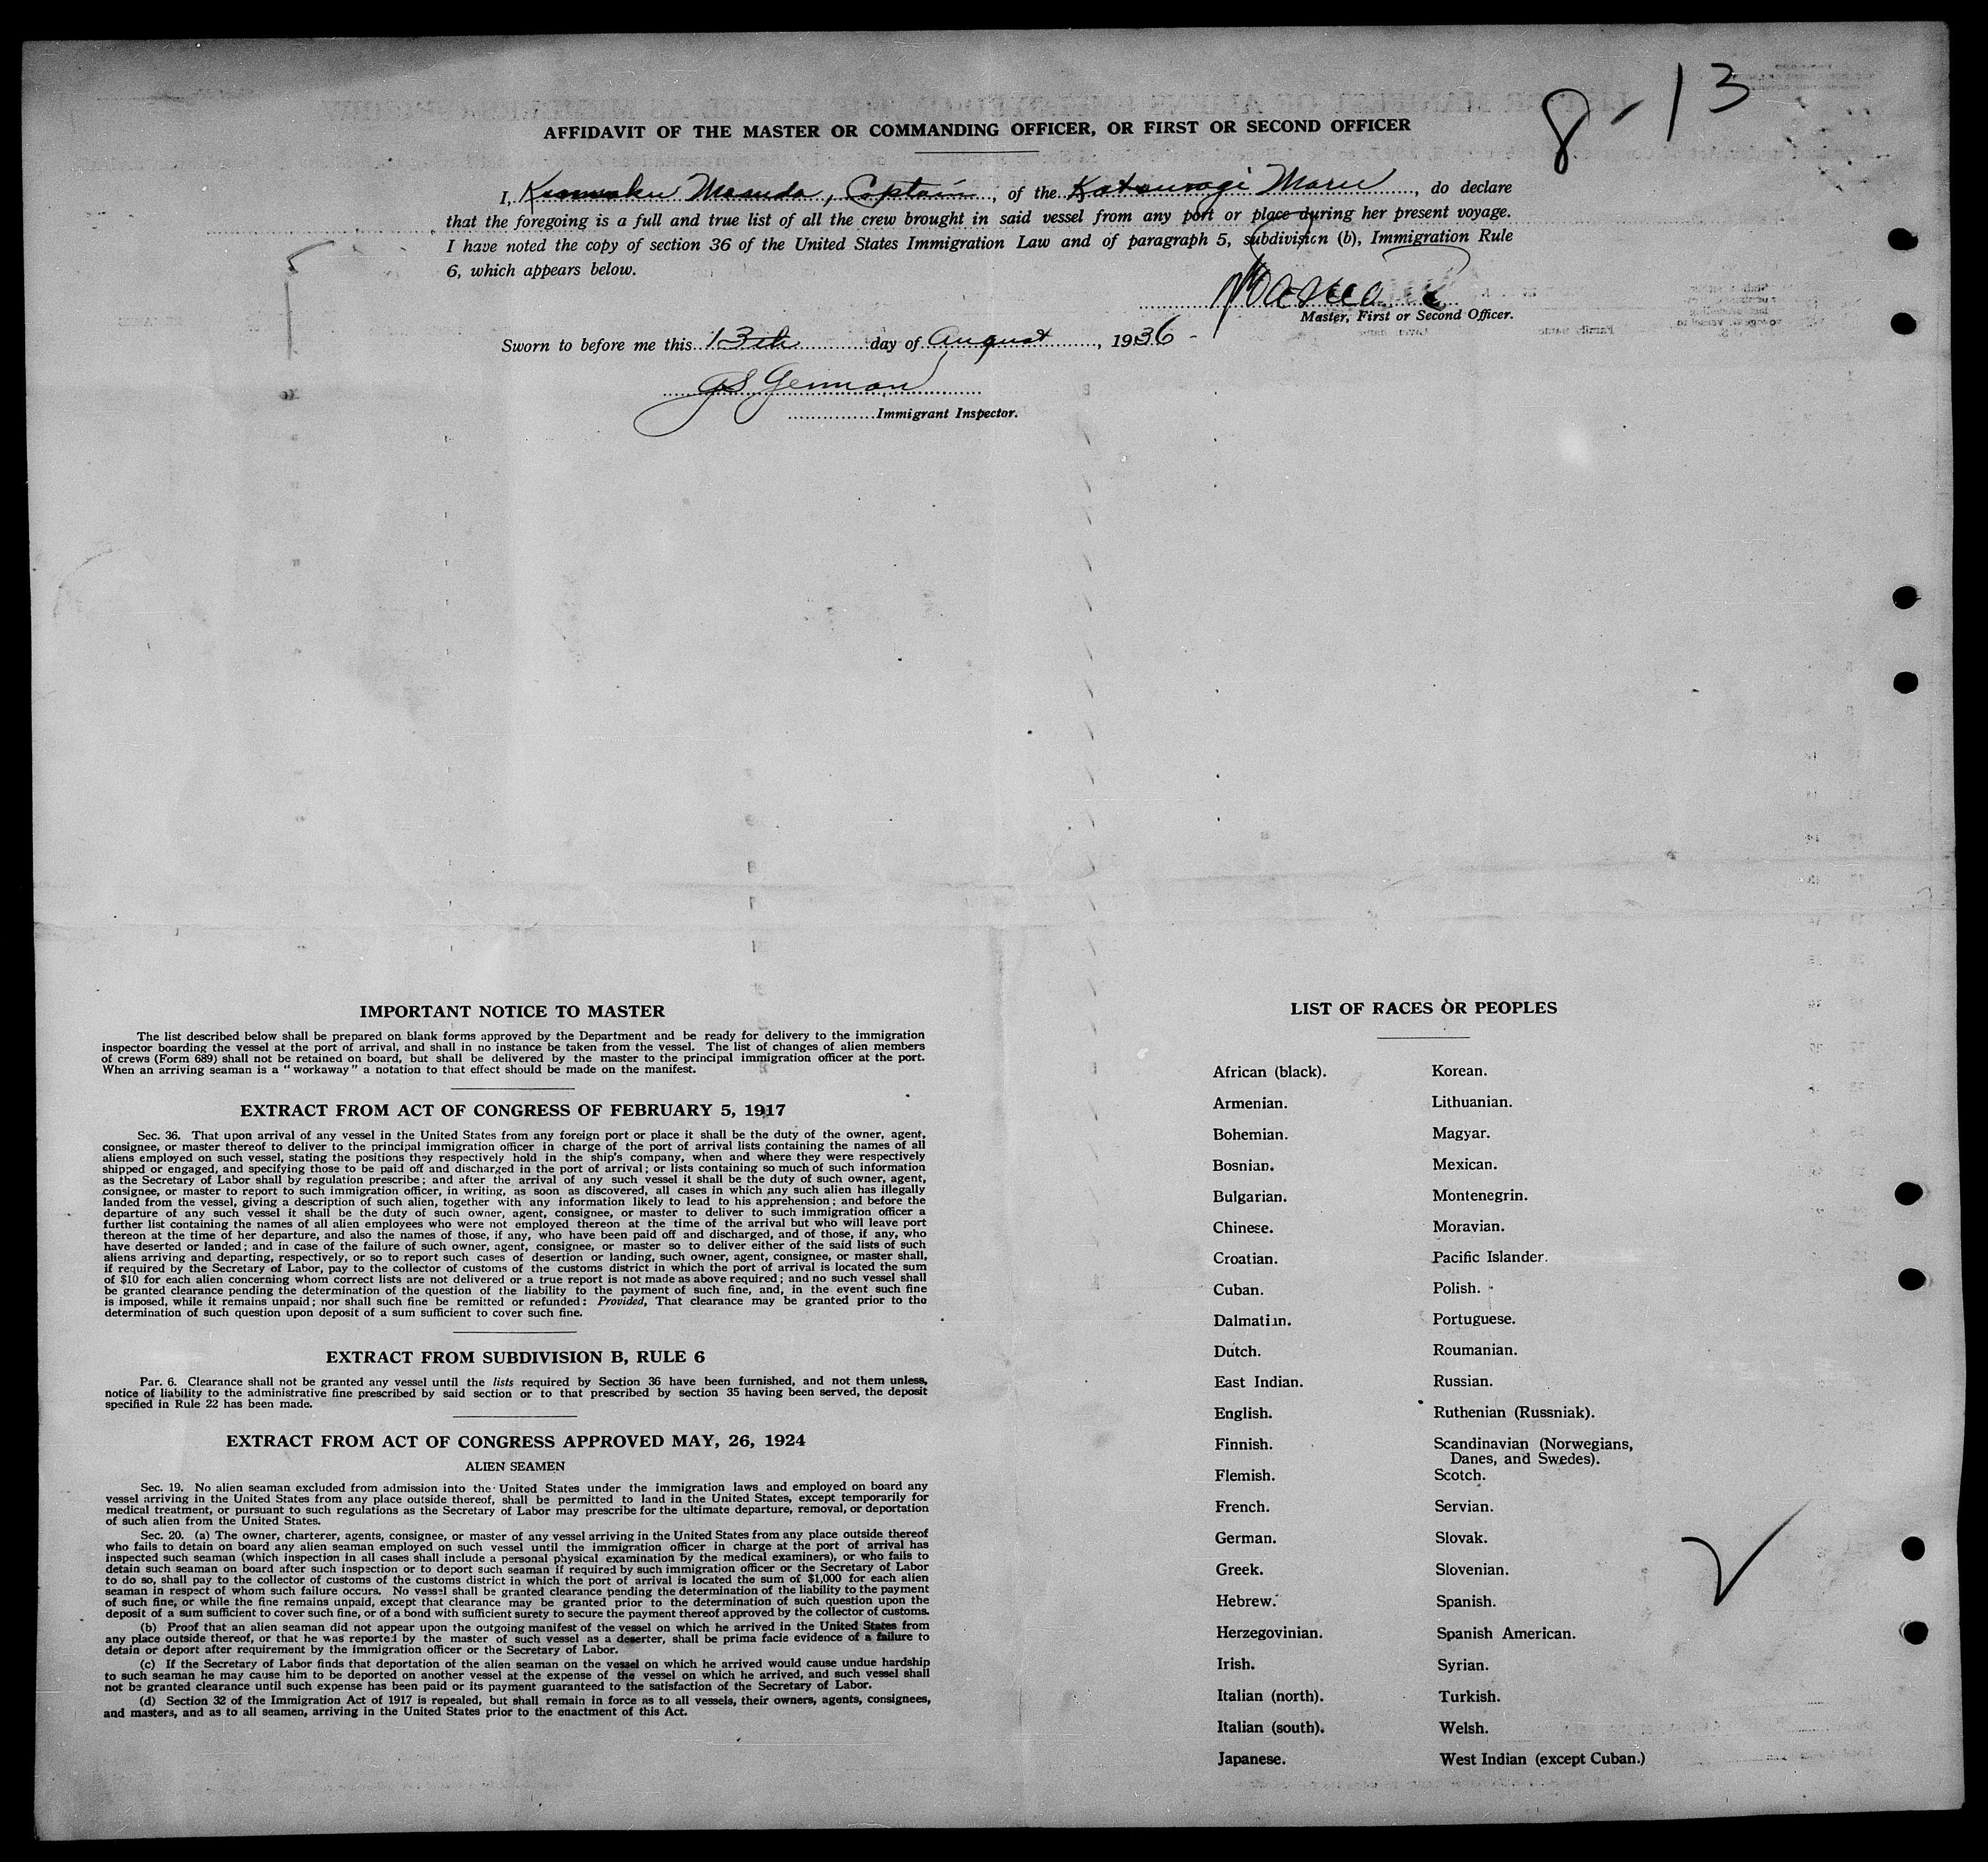 8-13
AFFIDAVIT OF THE MASTER OR COMMANDING OFFICER, OR FIRST OR SECOND OFFICER
I, Masuda, Captain, of the Katsuragi Maru, do declare
that the foregoing is a full and true list of all the crew brought in said vessel from any port or place during her present voyage.
I have noted the copy of section 36 of the United States Immigration Law and of paragraph 5, subdivision (b), Immigration Rule
6, which appears below.
Master, First or Second Officer.
Sworn to before me this 13th day of August, 1936
Immigrant Inspector.
IMPORTANT NOTICE TO MASTER
The list described below shall be prepared on blank forms approved by the Department and be ready for delivery to the immigration
inspector boarding the vessel at the port of arrival, and shall in no instance be taken from the vessel. The list of changes of alien members
of crews (Form 689) shall not be retained on board, but shall be delivered by the master to the principal immigration officer at the port.
When an arriving seaman is a "workaway" a notation to that effect should be made on the manifest.
EXTRACT FROM ACT OF CONGRESS OF FEBRUARY 5, 1917
Sec. 36. That upon arrival of any vessel in the United States from any foreign port or place it shall be the duty of the owner, agent,
consignee, or master thereof to deliver to the principal immigration officer in charge of the port of arrival lists containing the names of all
aliens employed on such vessel, stating the positions they respectively hold in the ship's company, when and where they were respectively
shipped or engaged, and specifying those to be paid off and discharged in the port of arrival; or lists containing so much of such information
as the Secretary of Labor shall by regulation prescribe; and after the arrival of any such vessel it shall be the duty of such owner, agent,
consignee, or master to report to such immigration officer, in writing, as soon as discovered, all cases in which any such alien has illegally
landed from the vessel, giving a description of such alien, together with any information likely to lead to his apprehension; and before the
departure of any such vessel it shall be the duty of such owner, agent, consignee, or master to deliver to such immigration officer a
further list containing the names of all alien employees who were not employed thereon at the time of the arrival but who will leave port
thereon at the time of her departure, and also the names of those, if any, who have been paid off and discharged, and of those, if any, who
have deserted or landed; and in case of the failure of such owner, agent, consignee, or master so to deliver either of the said lists of such
aliens arriving and departing, respectively, or so to report such cases of desertion or landing, such owner, agent, consignee, or master shall,
if required by the Secretary of Labor, pay to the collector of customs of the customs district in which the port of arrival is located the sum
of $10 for each alien concerning whom correct lists are not delivered or a true report is not made as above required; and no such vessel shall
be granted clearance pending the determination of the question of the liability to the payment of such fine, and, in the event such fine
is imposed, while it remains unpaid; nor shall such fine be remitted or refunded: Provided, That clearance may be granted prior to the
determination of such question upon deposit of a sum sufficient to cover such fine.
EXTRACT FROM SUBDIVISION B, RULE 6
Par. 6. Clearance shall not be granted any vessel until the lists required by Section 36 have been furnished, and not them unless,
notice of liability to the administrative fine prescribed by said section or to that prescribed by section 35 having been served, the deposit
specified in Rule 22 has been made.
EXTRACT FROM ACT OF CONGRESS APPROVED MAY, 26, 1924
ALIEN SEAMEN
Sec. 19. No alien seaman excluded from admission into the United States under the immigration laws and employed on board any
vessel arriving in the United States from any place outside thereof, shall be permitted to land in the United States, except temporarily for
medical treatment, or pursuant to such regulations as the Secretary of Labor may prescribe for the ultimate departure, removal, or deportation
of such alien from the United States.
Sec. 20. (a) The owner, charterer, agents, consignee, or master of any vessel arriving in the United States from any place outside thereof
who fails to detain on board any alien seaman employed on such vessel until the immigration officer in charge at the port of arrival has
inspected such seaman (which inspection in all cases shall include a personal physical examination by the medical examiners), or who fails to
detain such seaman on board after such inspection or to deport such seaman if required by such immigration officer or the Secretary of Labor
to do so, shall pay to the collector of customs of the customs district in which the port of arrival is located the sum of $1,000 for each alien
seaman in respect of whom such failure occurs. No vessel shall be granted clearance pending the determination of the liability to the payment
of such fine, or while the fine remains unpaid, except that clearance may be granted prior to the determination of such question upon the
deposit of a sum sufficient to cover such fine, or of a bond with sufficient surety to secure the payment thereof approved by the collector of customs.
(b) Proof that an alien seaman did not appear upon the outgoing manifest of the vessel on which he arrived in the United States from
any place outside thereof, or that he was reported by the master of such vessel as a deserter, shall be prima facie evidence of a failure to
detain or deport after requirement by the immigration officer or the Secretary of Labor.
(c) If the Secretary of Labor finds that deportation of the alien seaman on the vessel on which he arrived would cause undue hardship
to such seaman he may cause him to be deported on another vessel at the expense of the vessel on which he arrived, and such vessel shall
not be granted clearance until such expense has been paid or its payment guaranteed to the satisfaction of the Secretary of Labor.
(d) Section 32 of the Immigration Act of 1917 is repealed, but shall remain in force as to all vessels, their owners, agents, consignees,
and masters, and as to all seamen, arriving in the United States prior to the enactment of this Act.
LIST OF RACES OR PEOPLES
African (black).
Armenian.
Bohemian.
Bosnian.
Bulgarian.
Chinese.
Croatian.
Cuban.
Dalmatian.
Dutch.
East Indian.
English.
Finnish.
Flemish.
French.
German.
Greek.
Hebrew.
Herzegovinian.
Irish.
Italian (north).
Italian (south).
Japanese.
Korean.
Lithuanian.
Magyar.
Mexican.
Montenegrin.
Moravian.
Pacific Islander.
Polish.
Portuguese.
Roumanian.
Russian.
Ruthenian (Russniak).
Scandinavian (Norwegians,
Danes, and Swedes).
Scotch.
Servian.
Slovak.
Slovenian.
Spanish.
Spanish American.
Syrian.
Turkish.
Welsh.
West Indian (except Cuban.)